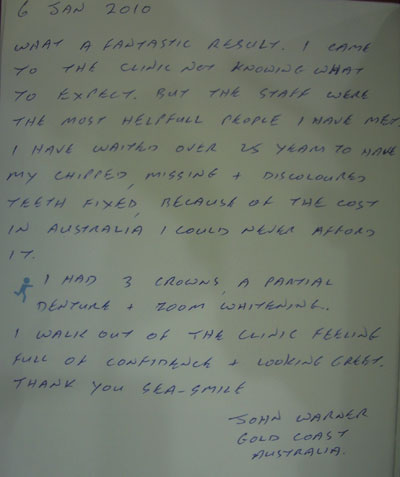 6 JAN 2010
WHAT A FANTASTIC RESULT. I CAME
TO THE CLINIC NOT KNOWING WHAT
TO EXPECT. BUT THE STAFF WERE
THE MOST HELPFULL PEOPLE I HAVE MET.
I HAVE WAITED OVER 25 YEAM TO HAVE
MY CHIPPED, MISSING + DISCOLOURED
TEETH FIXED, BECAUSE OF THE COST
IN AUSTRALIA I COULD NEVER AFFORD
IT.
I HAD 3 CROWNS, A PARTIAL
DENTURE + ZOOM WHITENING.
I WALK OUT OF THE CLINIC FEELING
FULL OF CONFIDENCE + LOOKING GREET.
THANK YOU SEA-SMILE
JOHN WARNER
GOLD COAST
AUSTRALIA.